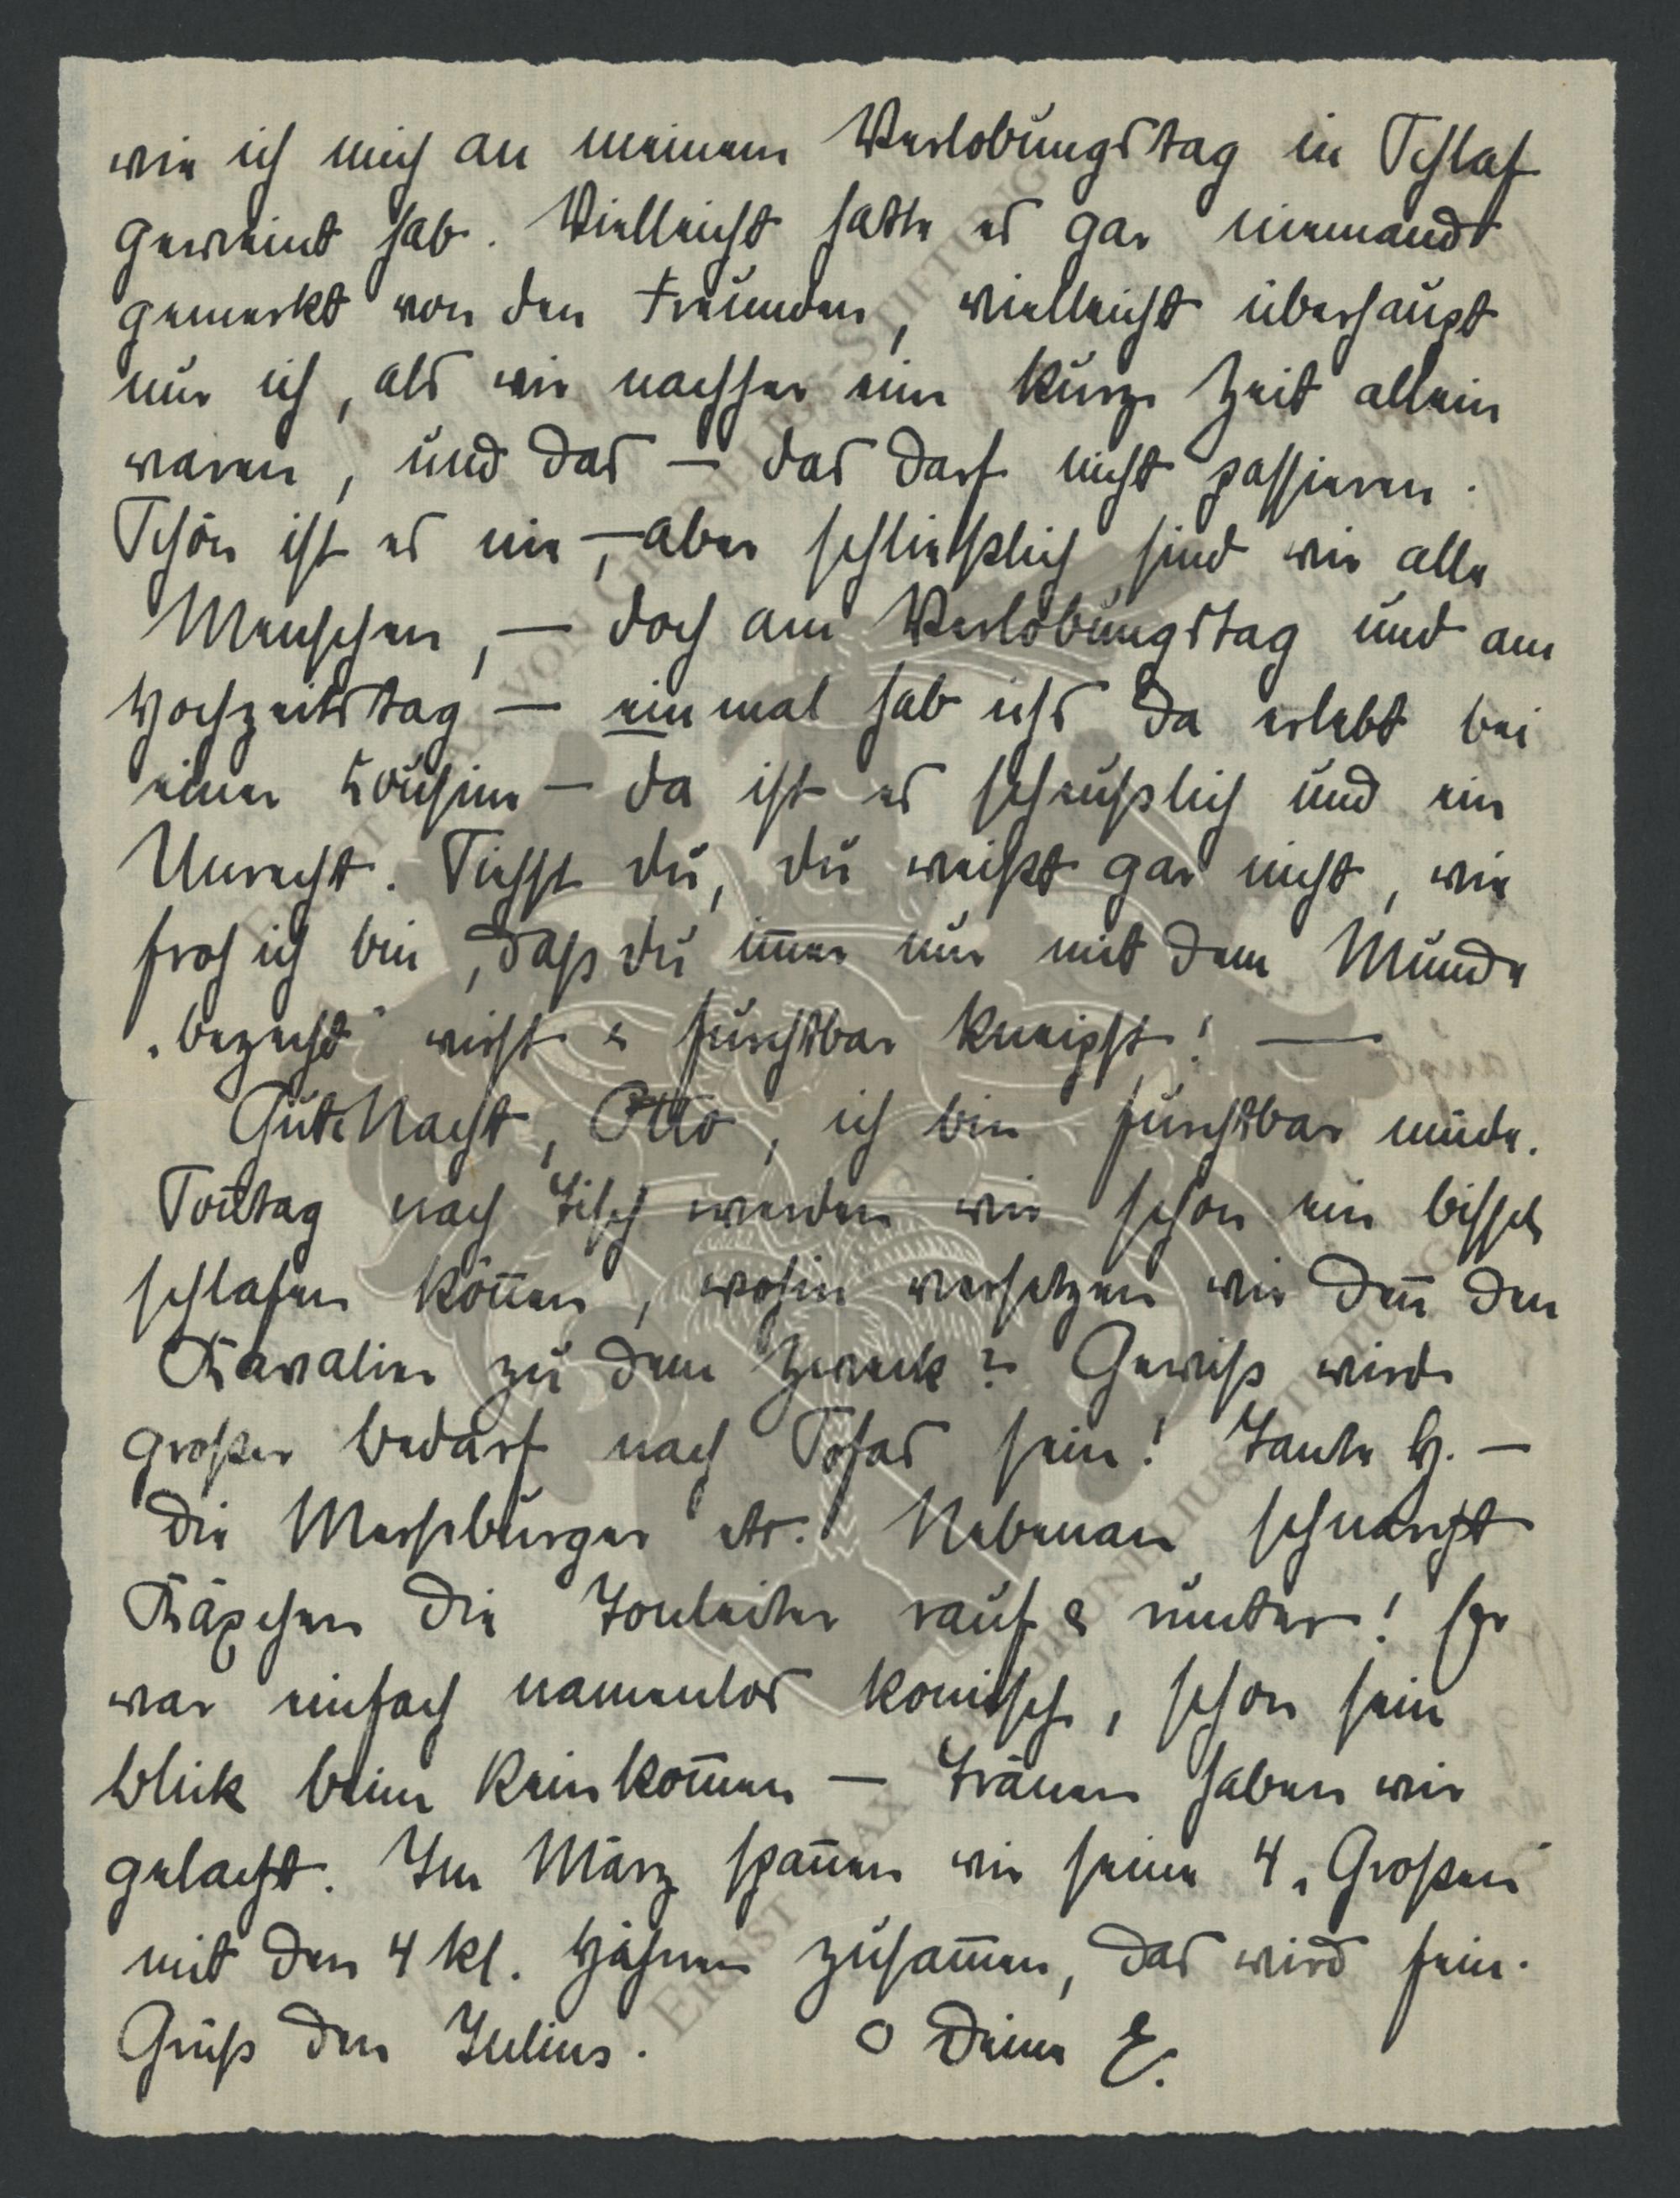 wie ich mich an meinem Verlobungstag in Schlaf
geweint hab. Vielleicht hatte es gar niemand
gemerkt von den Freunden, vielleicht überhaupt
nur ich, als wir nachher eine kurze Zeit allein
waren, und das – das darf nicht passieren.
Schön ist es nie –, aber schließlich sind wir alle
Menschen, – doch am Verlobungstag und am
Hochzeitstag – einmal hab ichs da erlebt bei
einer Cousine – da ist es scheußlich und ein
Unrecht. Siehst du, du weißt gar nicht, wie
froh ich bin, daß du im̄er nur mit dem Munde
„bezecht“ wirst & furchtbar kneipst! —
Gute Nacht, Otto, ich bin furchtbar müde.
Son̄tag nach Tisch werden wir schon ein bissel
schlafen kön̄en, wohin versetzen wir den̄ den
Kavalier zu dem Zweck? Gewiß wird
großer Bedarf nach Sofas sein! Tante H. –
die Merseburger etc. Nebenan schnarcht
Käpchen die Tonleiter rauf & runter! Er
war einfach namenlos komisch, schon sein
Blick beim Reinkom̄en – Tränen haben wir
gelacht. Im März span̄en wir seine 4 „Großen“
mit den 4 kl. Hähnen zusam̄en, das wird fein.
Grüß den Julius. O Deine E.